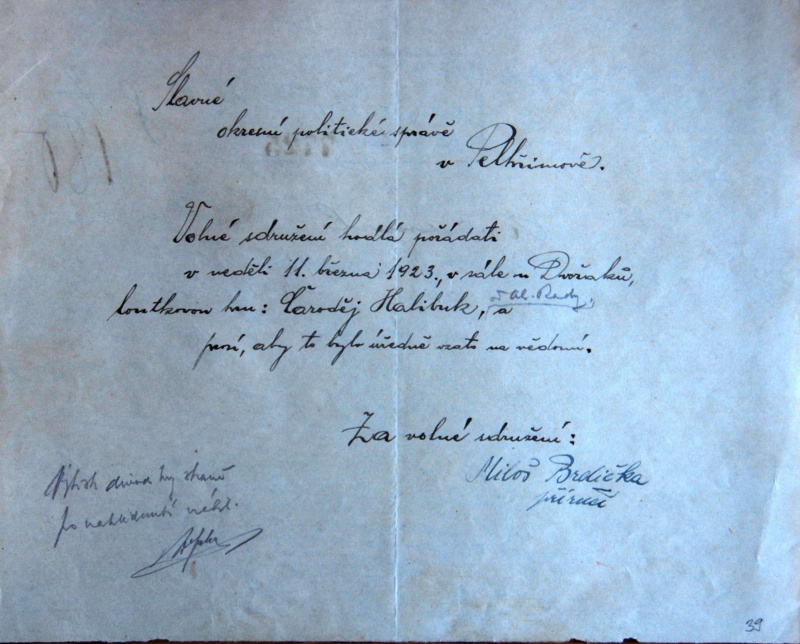 Slavné
okresní politické správě
v Pelhřimově.
Volné sdružení hodlá pořádati
v neděli 11. března 1923., v sále u Dvořáků,
loutkovou hru: Čaroděj Halibuk, od Al. Rady, a
prosí, aby to bylo úředně vzato na vědomí.
Za volné sdružení:
Miloš Brdička
Výtisk divad. hry
po nahlédnutí
39